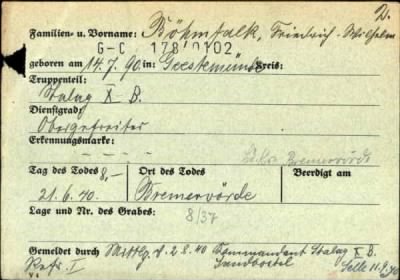 2.
Familien- u. Vorname: Böhmfalk, Friedrich-Wilhelm
G-C 178/0102
geboren am 14.7.90 in: Geestemünde Kreis:
Truppenteil:
Stalag X B.
Dienstgrad:
Obergefreiter
Erkennungsmarke: Bremervörde
Tag des Todes Ort des Todes Beerdigt am
21.6.40 Bremervörde
Lage und Nr. des Grabes: 8/37
Gemeldet durch Mittlg. v. 2.8.40 Kommandant Stalag X B.
Ref. I Sandbostel